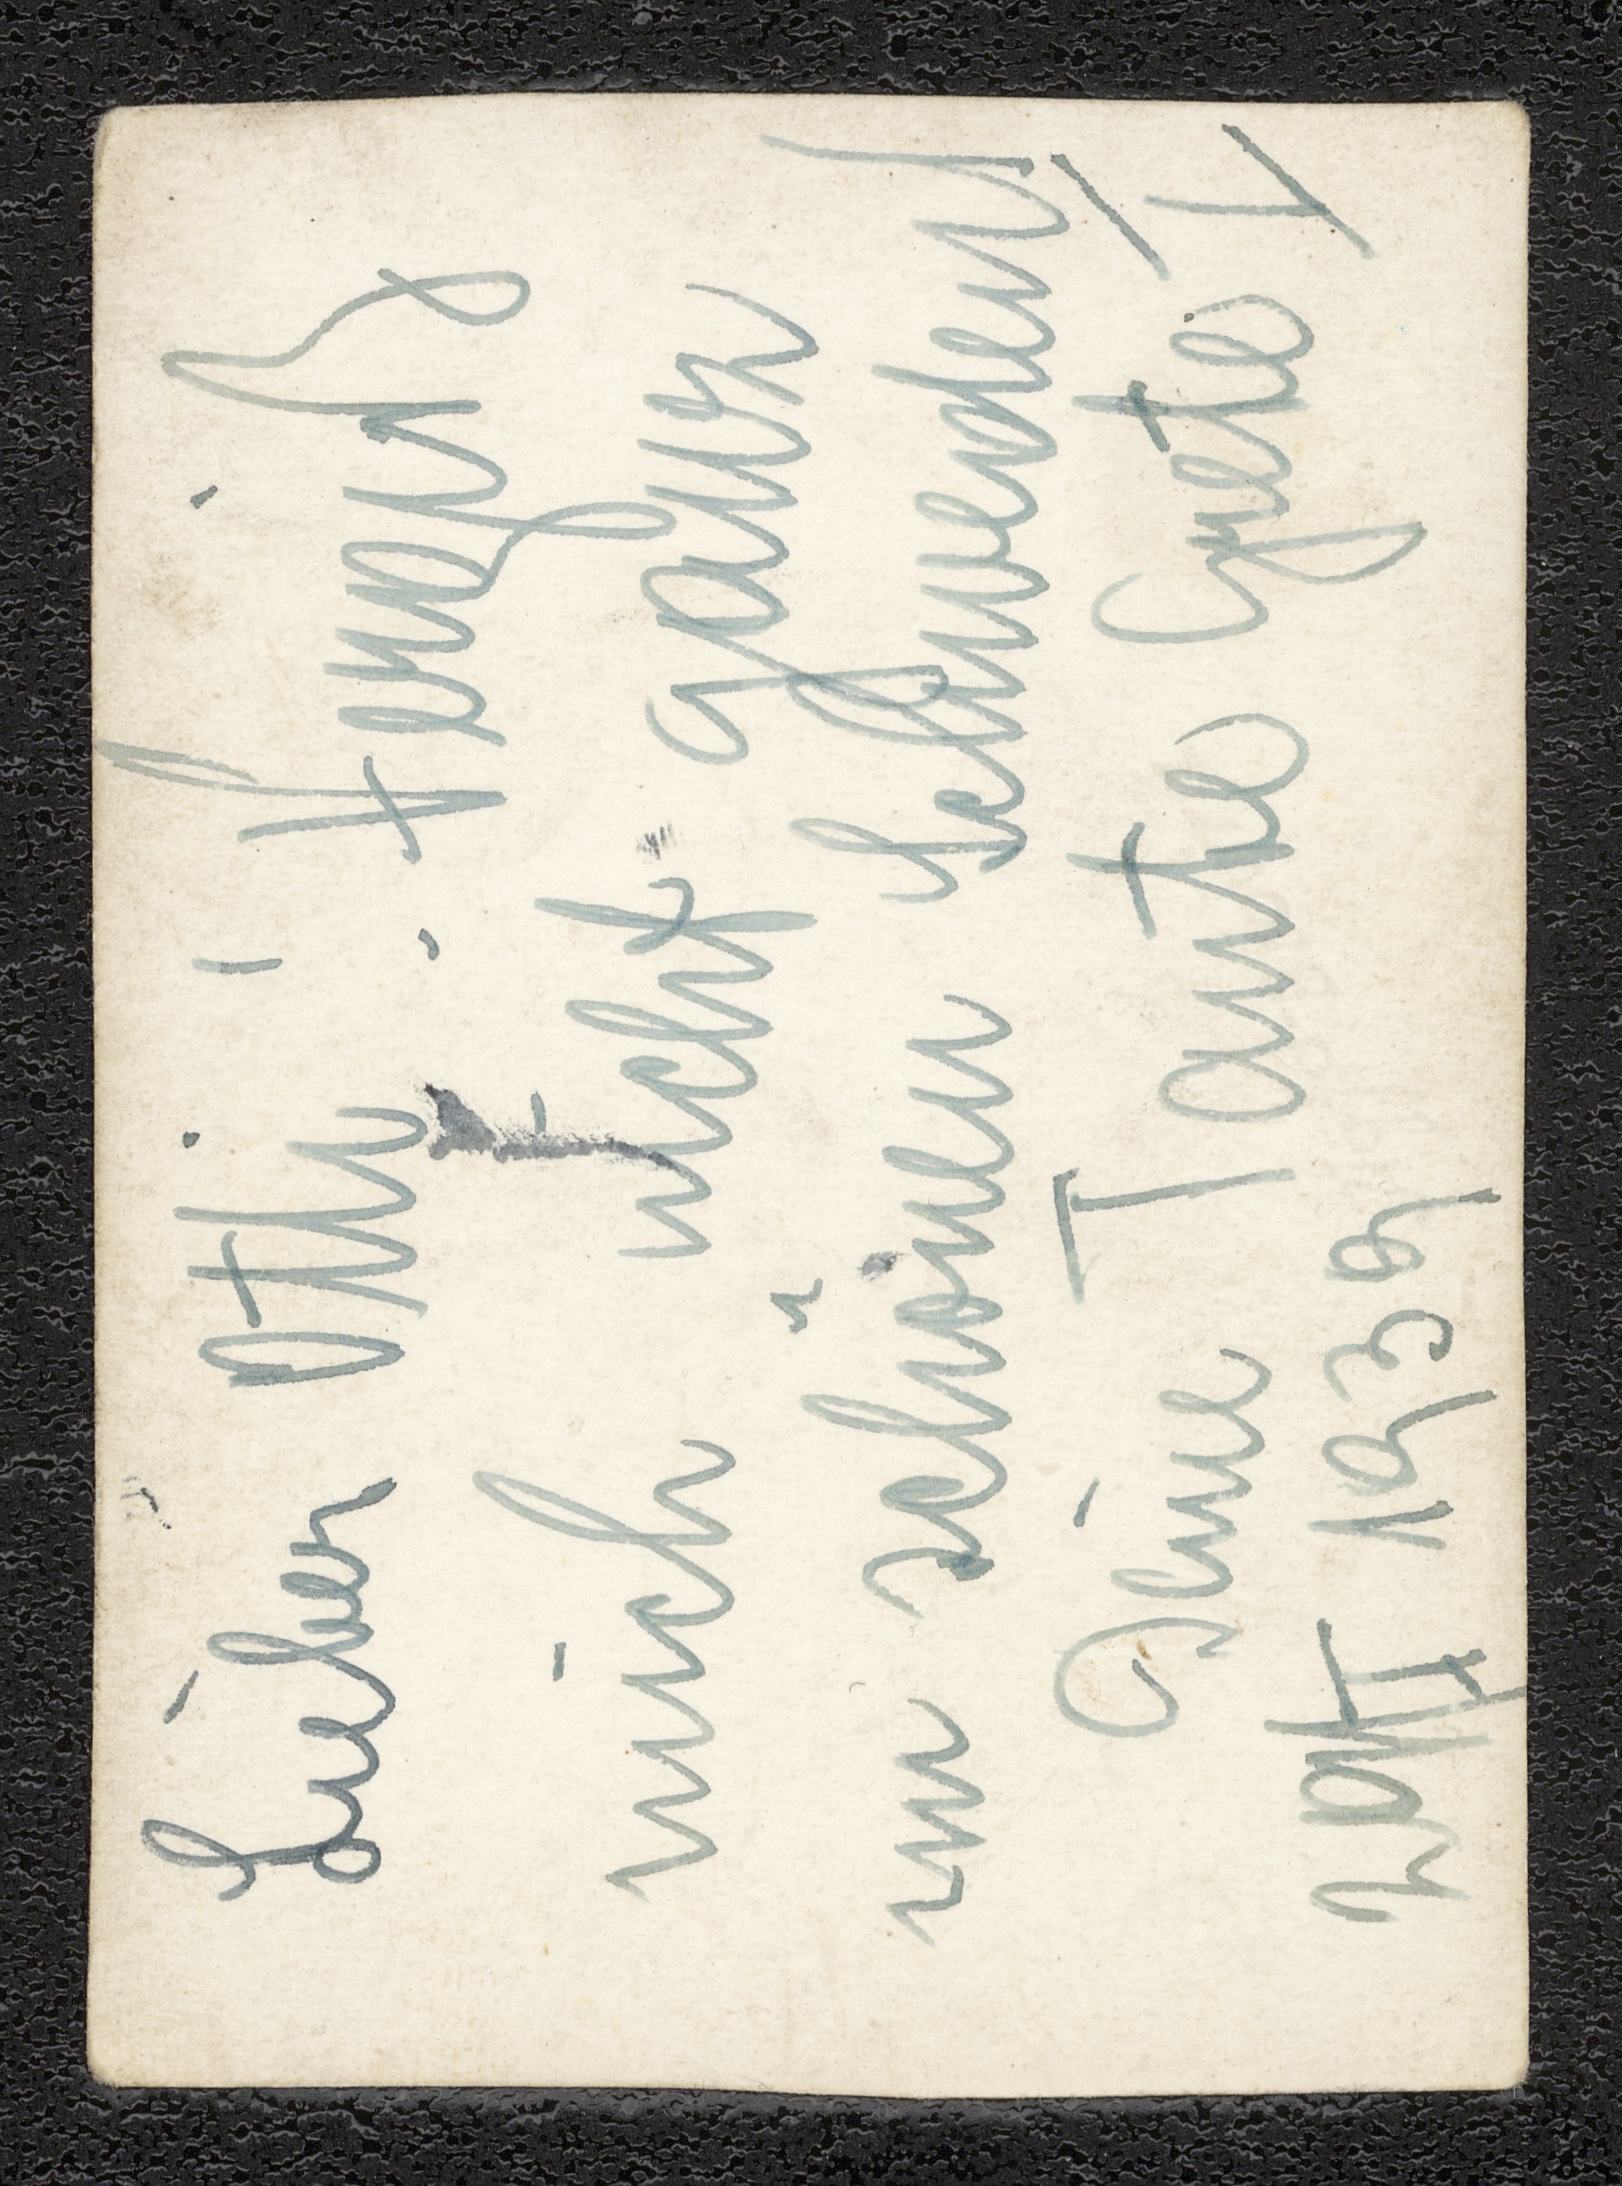 Lieber Otti! Vergiß
mich nicht ganz
im schönen Schweden!
Deine Tante Grete V
1939